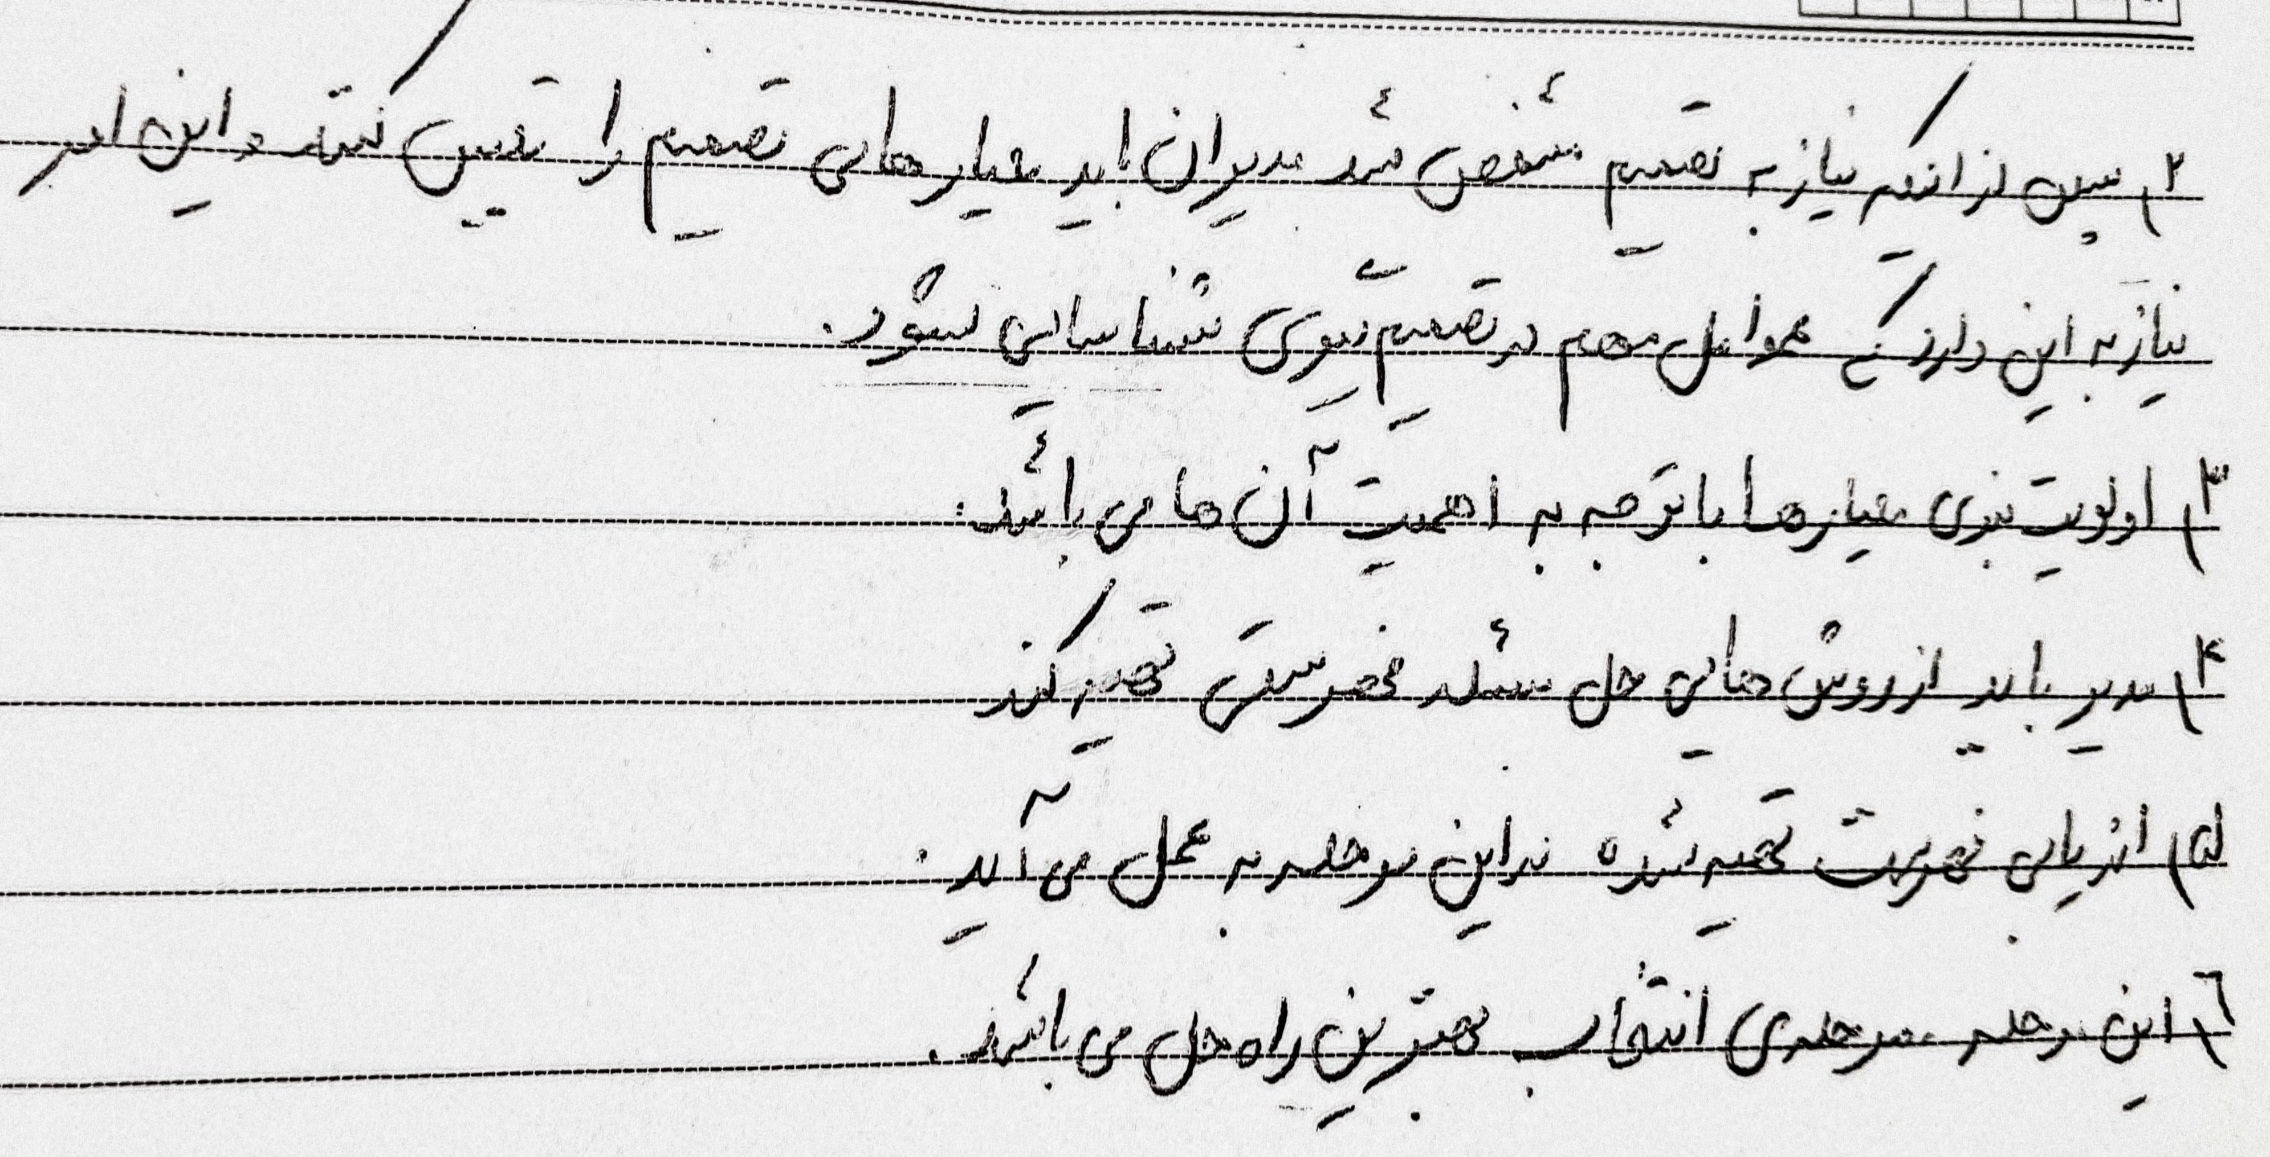 ۲) پس از اینکه نیاز به تصمیم مشخص شد مدیران باید معیارهای تصمیم را تعیین کنند و این امر
نیاز به این دارد که عوامل مهم در تصمیم‌گیری شناسایی شود.
۳) اولویت بندی معیارها با توجه به اهمیت آن ها می باشد.
۴) مدیر باید از روش هایی حل مسئله فهرستی تهیه کند
۵) ارزیابی فهرست تهیه شده در این مرحله به عمل می آید.
۶) این مرحله، مرحله‌ی انتخاب بهترین راه حل می باشد.